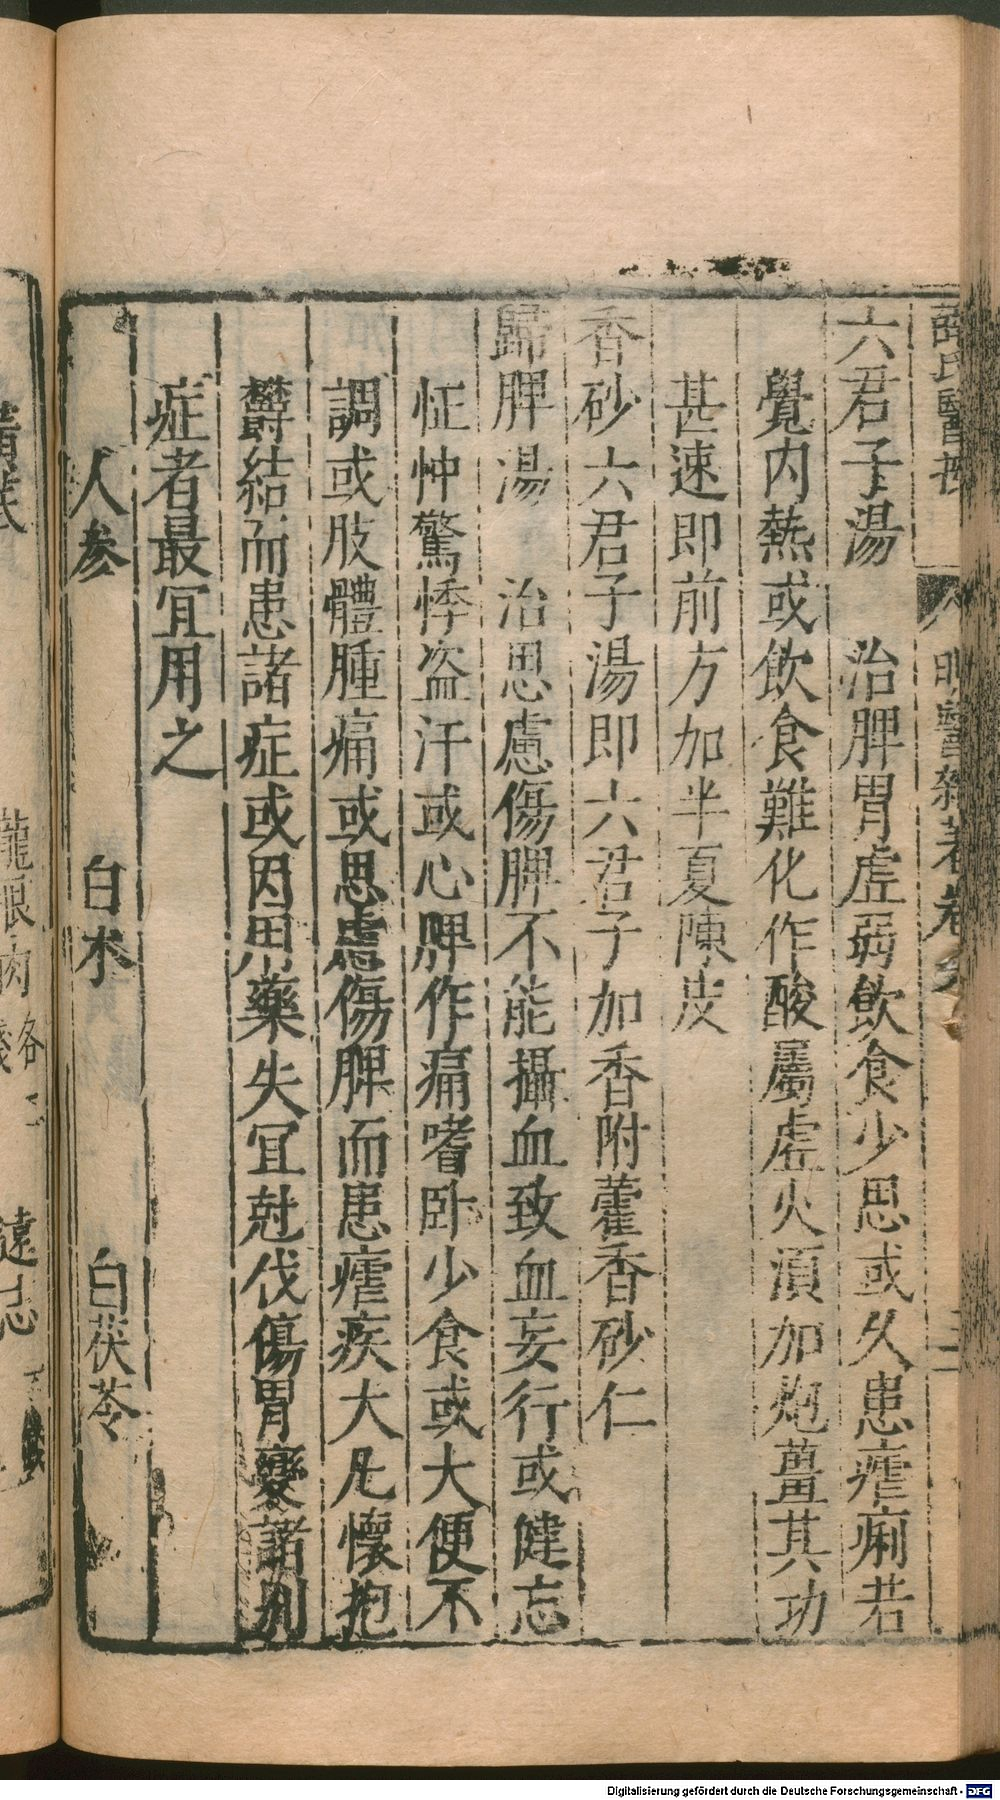 薛氏醫
明醫雜著卷
六君子湯　治脾胃虛弱飲食少思或久患瘧痢若
覺内熱或飲食難化作酸屬虛火湏加炮薑其功
甚速即前方加半夏陳皮
香砂六君子湯即六君子加香附藿香砂仁
歸脾湯　治思慮傷脾不能攝血致血妄行或健忘
怔忡驚悸盗汗或心脾作痛嗜卧少食或大便不
調或肢體腫痛或思慮傷脾而患瘧疾大凡懷抱
欝結而患諸症或因用藥失冝尅伐傷胃變諸别
症者最冝用之
人參　白朮　白茯苓
龍眼肉各二
遠志